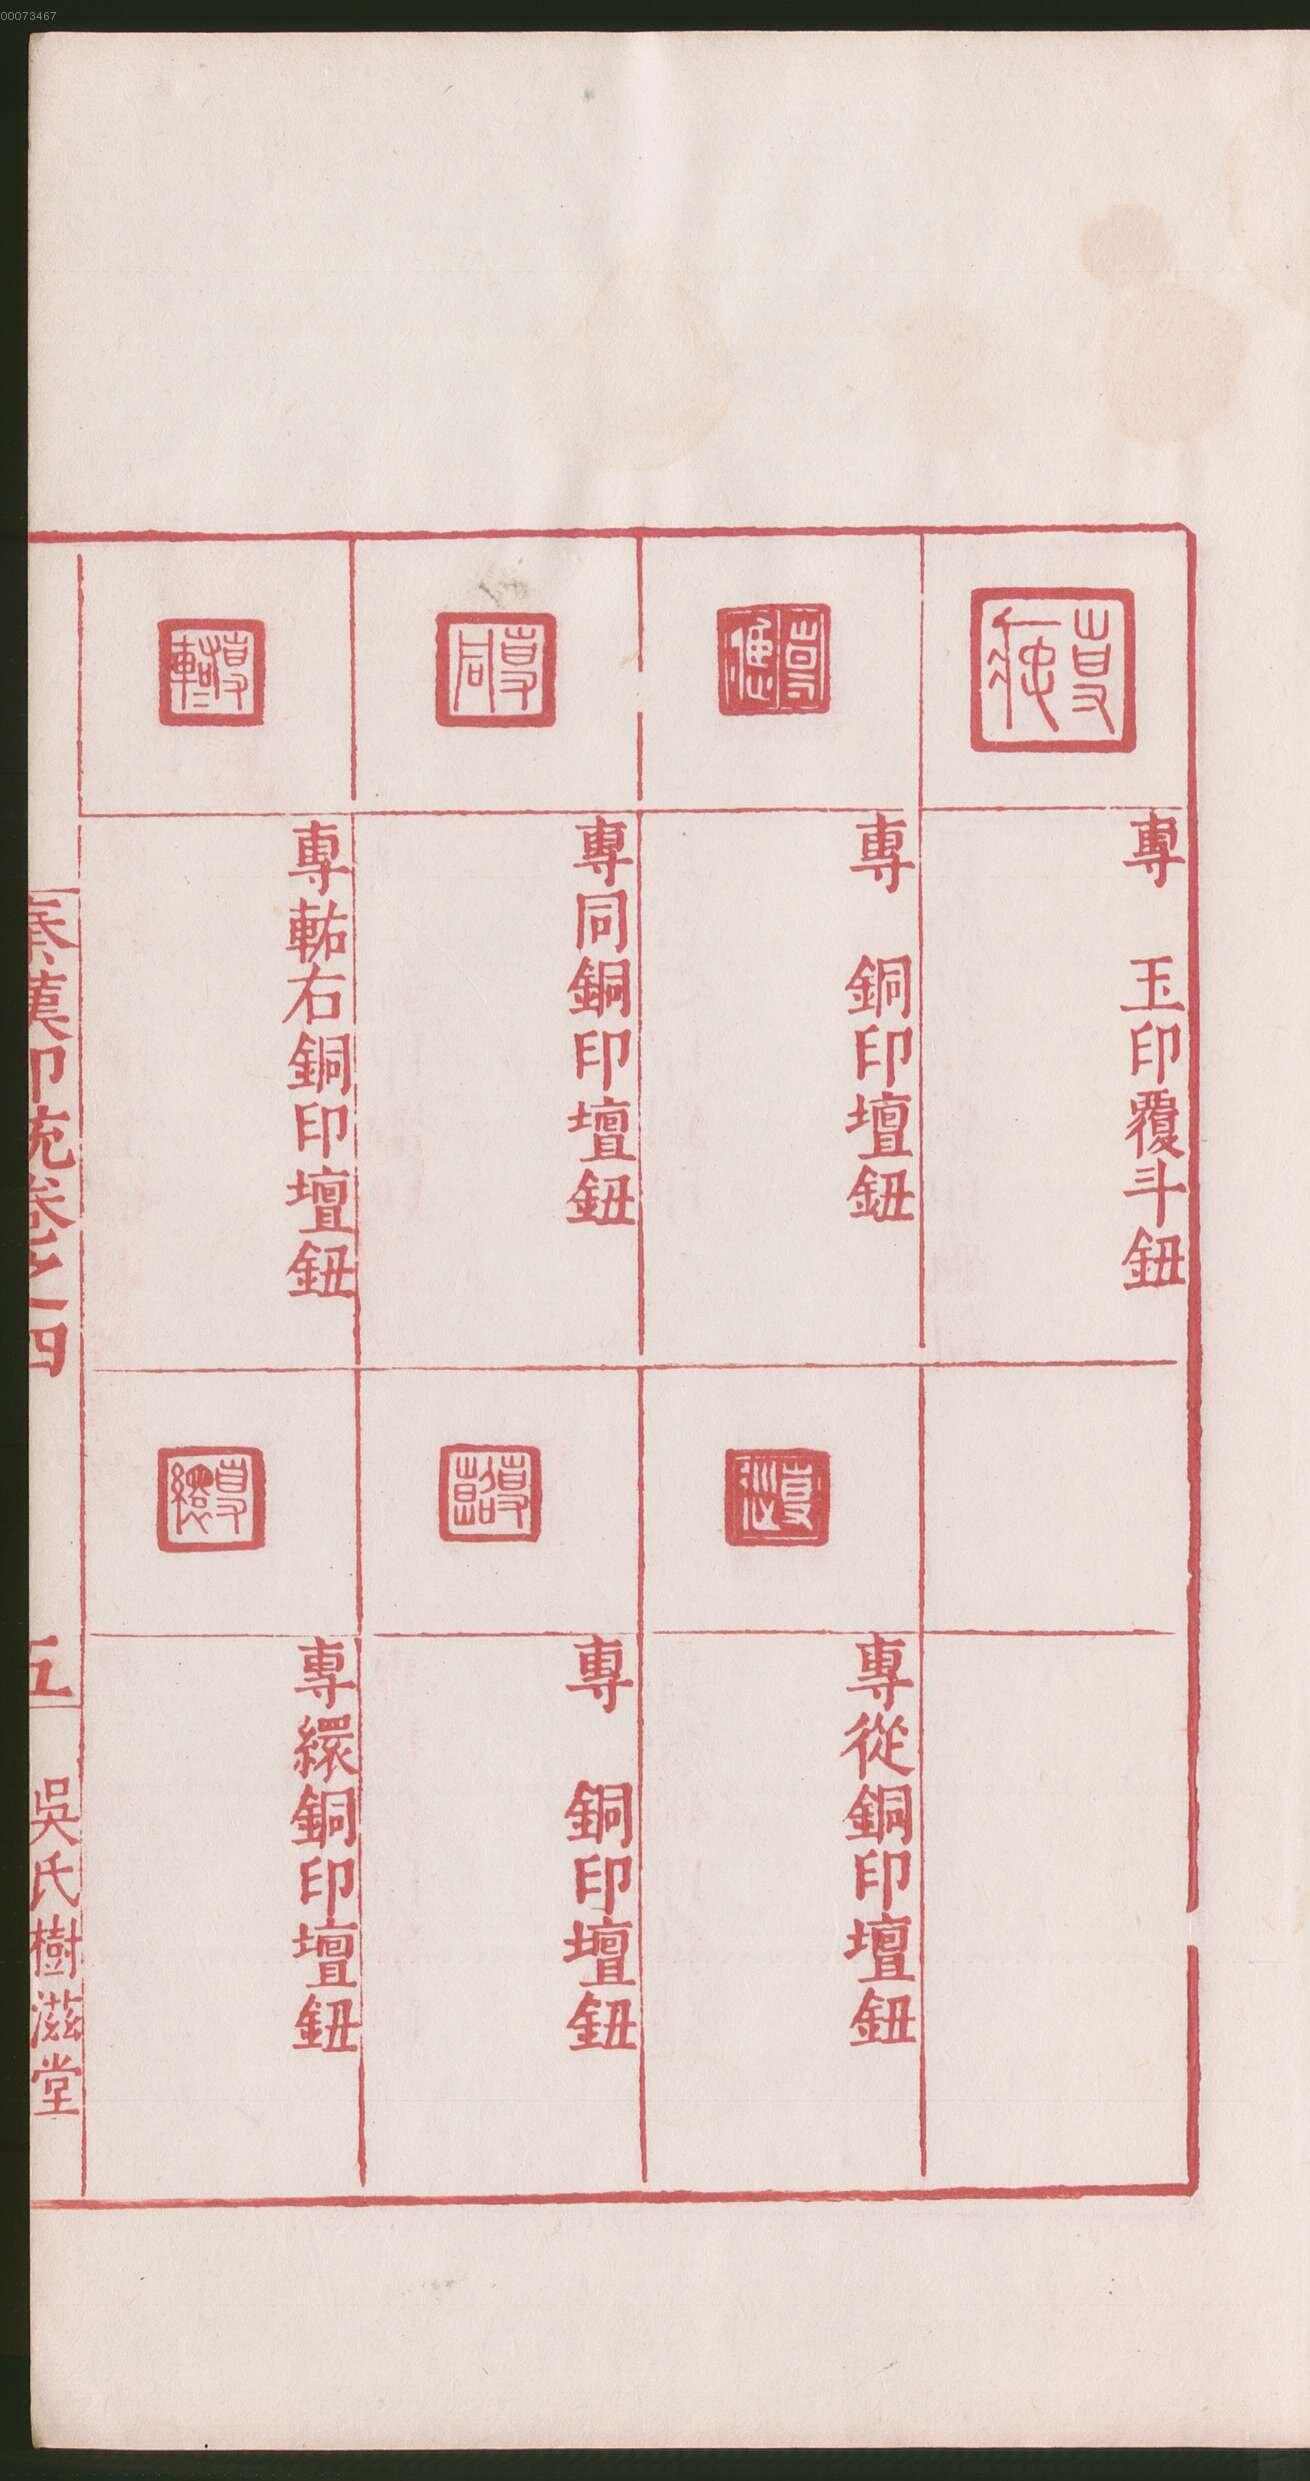 00073467
專　玉印覆斗鈕
專　銅印壇鈕
專同銅印壇鈕
專軩右銅印壇鈕
專從銅印壇鈕
專　銅印壇鈕
專繯銅印壇鈕
秦漢印統卷之四
五
吳氏樹滋堂